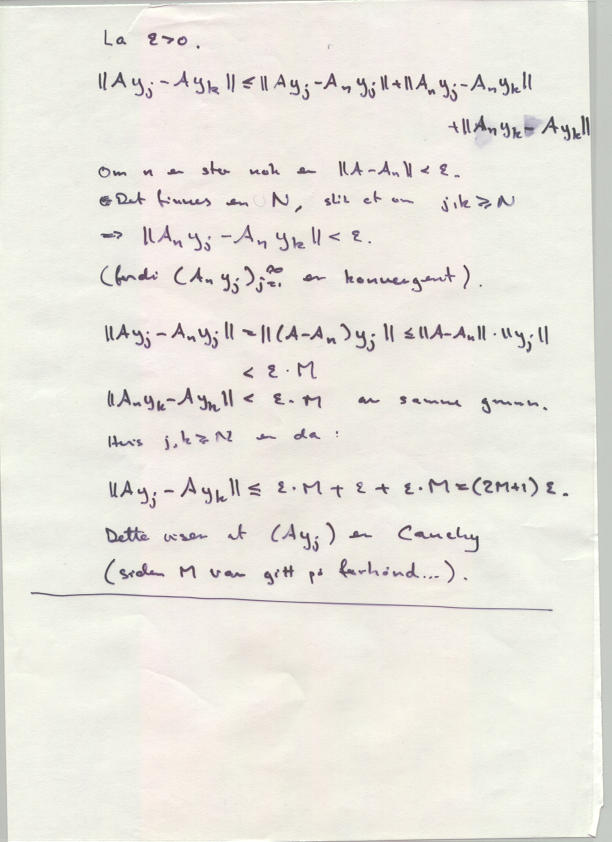 La ε>0.
||Ay_j - Ay_k|| ≤ ||Ay_j - A_n y_j|| + ||A_n y_j - A_n y_k||
+ ||A_n y_k - Ay_k||
Om n er stor nok er ||A - A_n|| < ε.
Det finnes en N, slik at om j,k ≥ N
=> ||A_n y_j - A_n y_k|| < ε.
(fordi (A_n y_j)_{j=1}^∞ er konvergent).
||Ay_j - A_n y_j|| = ||(A-A_n)y_j|| ≤ ||A-A_n||·||y_j||
< ε·M
||A_n y_k - Ay_k|| < ε·M av samme grunn.
Hvis j,k ≥ N er da:
||Ay_j - Ay_k|| ≤ ε·M + ε + ε·M = (2M+1)ε.
Dette viser at (Ay_j) er Cauchy
(siden M var gitt på forhånd...).